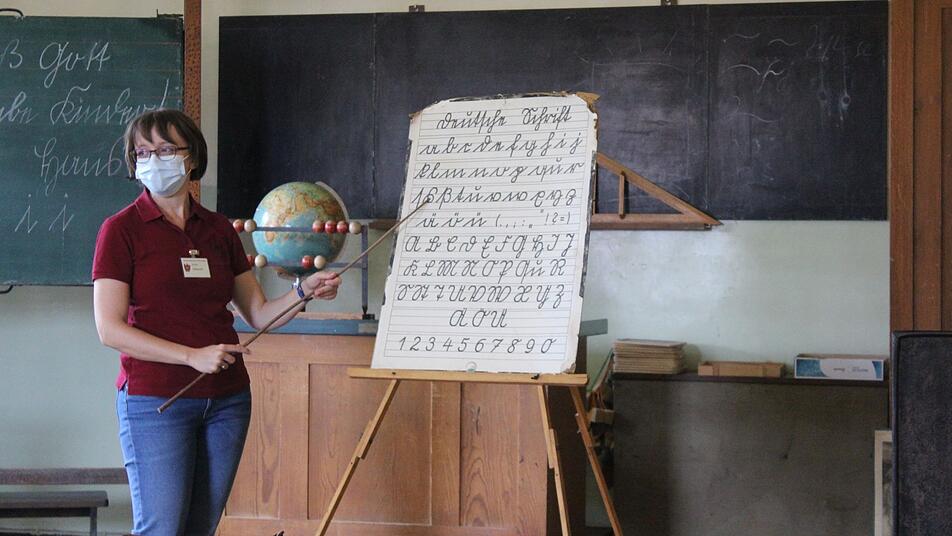 ß Gott
be Kinder
Hans
i i
Deutsche Schrift
a b c d e f g h i j
k l m n o p q u r
ſ s ß t u v w x y z
ä ö ü ( , . ; : „ " ! ? = )
A B C D E F G H I J
K L M N O P Qu R
S St T U V W X Y Z
Ä Ö Ü
1 2 3 4 5 6 7 8 9 0